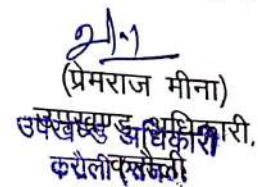 (प्रेमराज मीना)
उपखण्ड अधिकारी,
करौली
उपखण्ड अधिकारी
करौली (राज०)